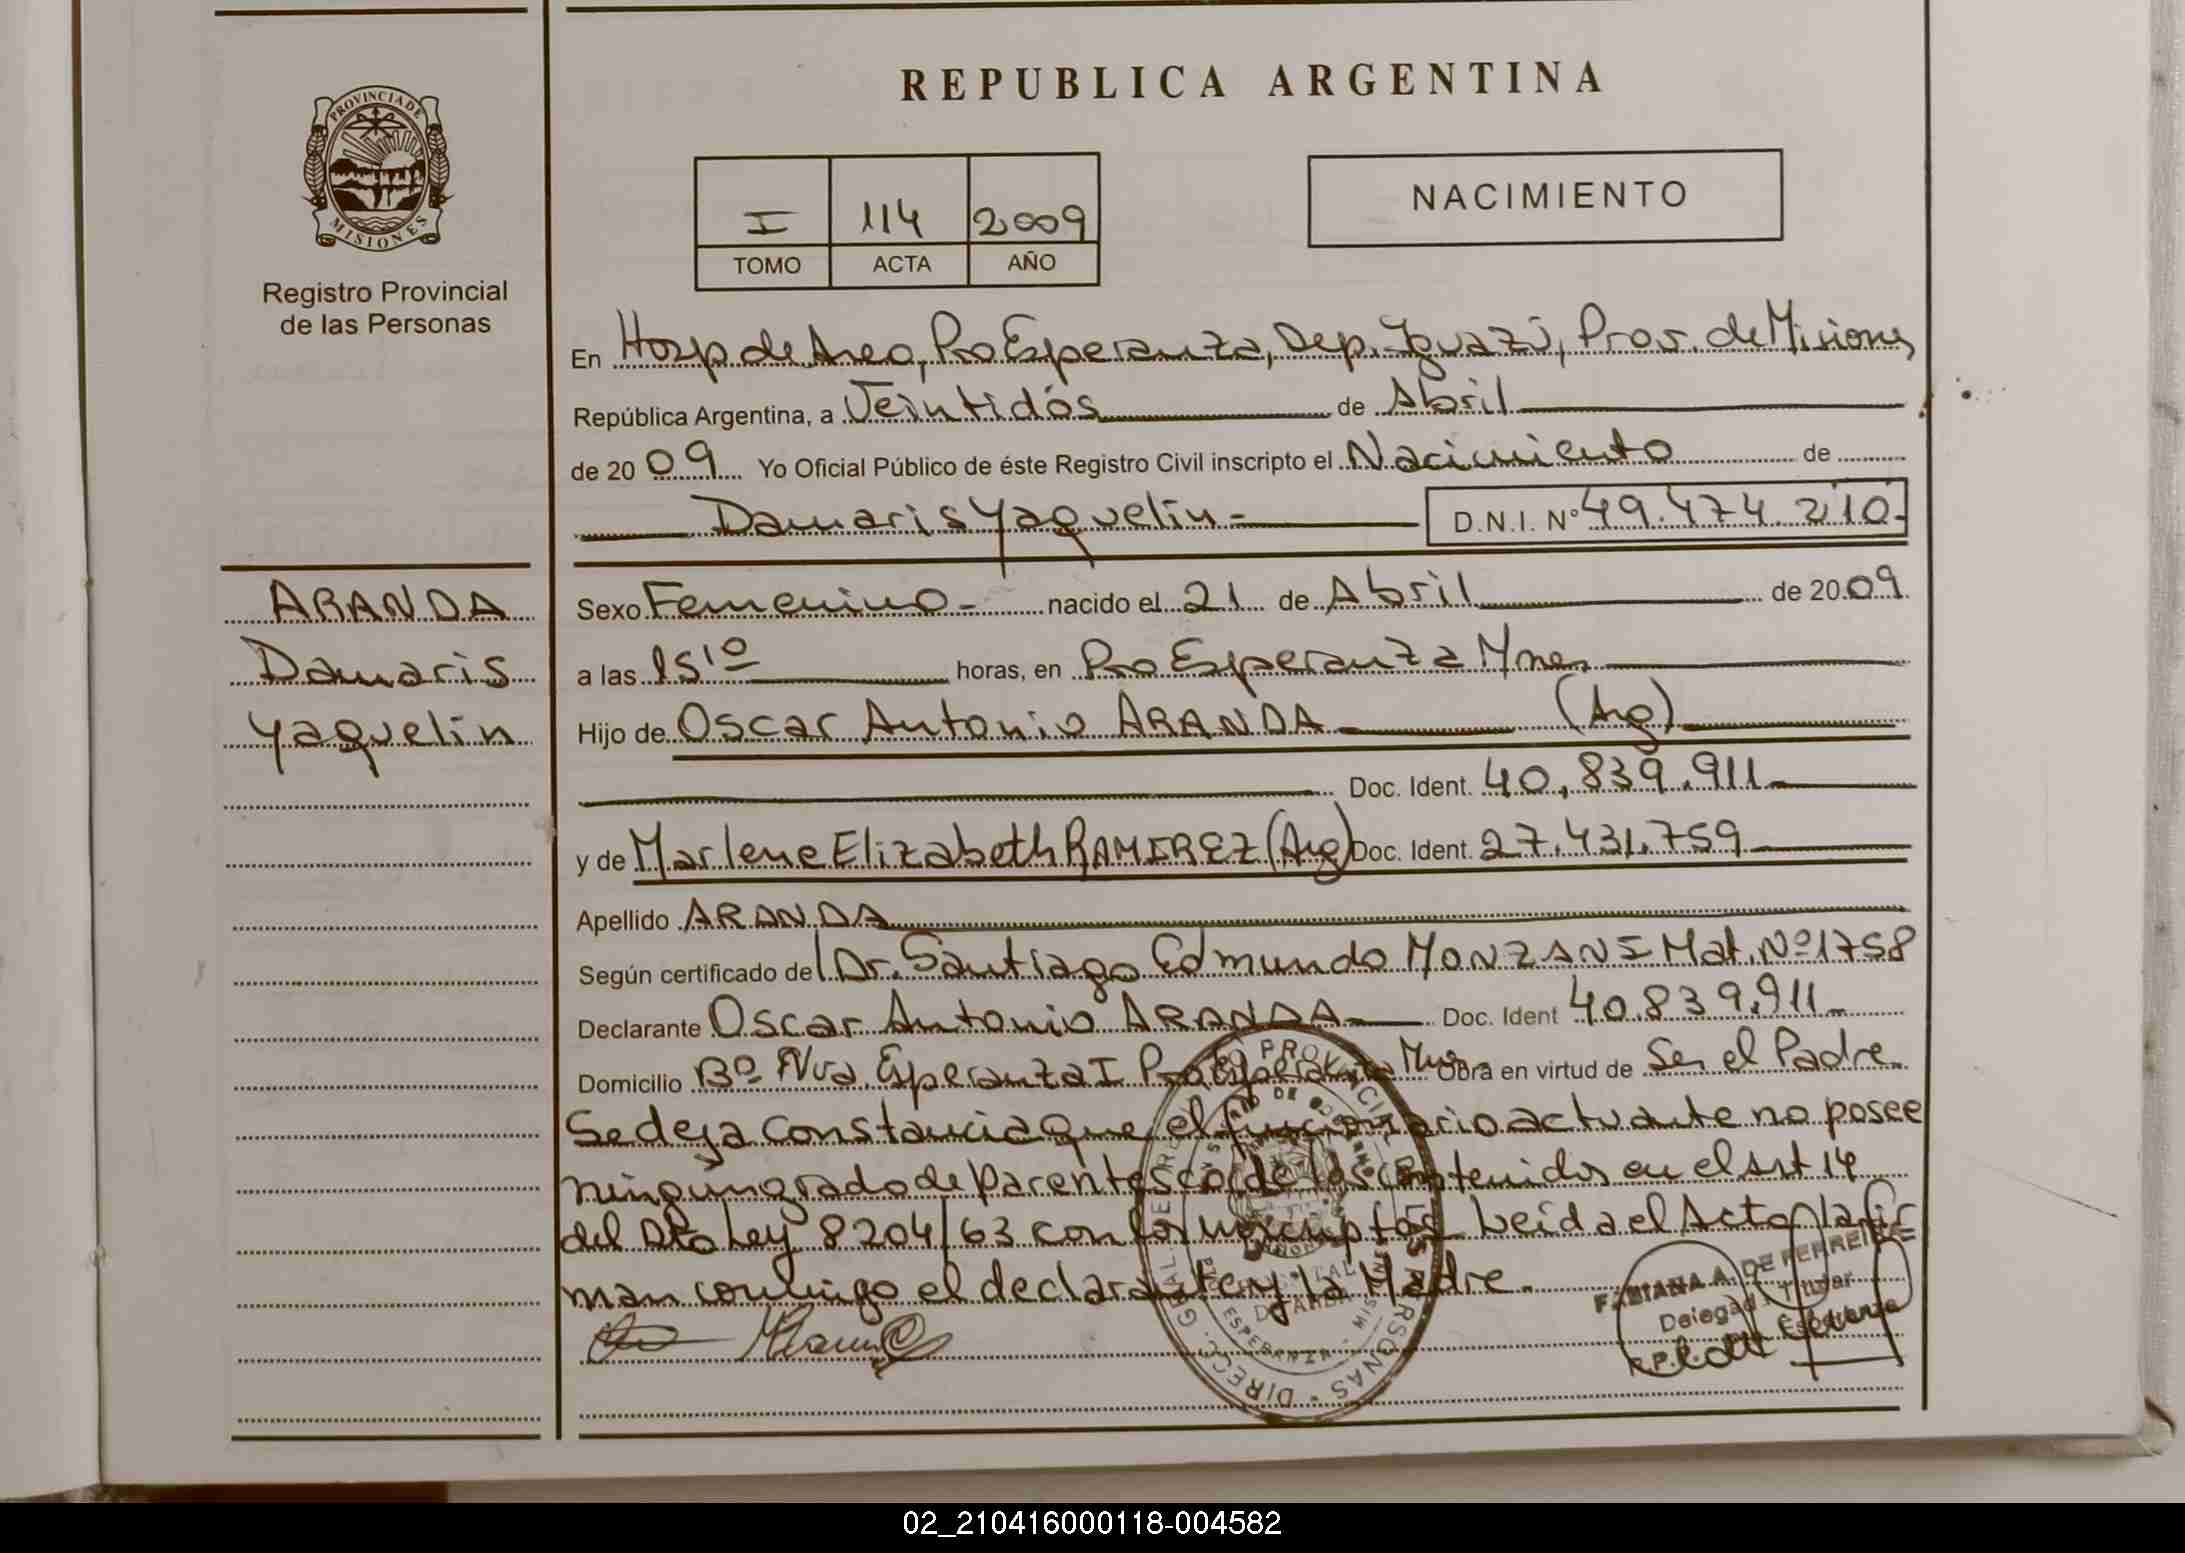 REPUBLICA ARGENTINA
PROVINCIA DE
MISIONES
Registro Provincial
de las Personas
I 114 2009
TOMO ACTA AÑO
NACIMIENTO
En Hosp de Area, Pto Esperanza, Dep. Iguazú, Prov. de Misiones,
República Argentina, a Veintidós de Abril
de 2009 Yo Oficial Público de éste Registro Civil inscripto el Nacimiento de
Damaris Yaquelin - D.N.I. Nº 49.474.210-
ARANDA
Damaris
Yaquelin
Sexo Femenino - nacido el 21 de Abril de 2009
a las 15¹⁰ horas, en Pto Esperanza Mnes
Hijo de Oscar Antonio ARANDA (Arg)
Doc. Ident. 40.839.911
y de Marlene Elizabeth RAMIREZ (Arg) Doc. Ident. 27.431.759
Apellido ARANDA
Según certificado del Dr. Santiago Edmundo MONZANI Mat. Nº 1758
Declarante Oscar Antonio ARANDA Doc. Ident 40.839.911
Domicilio Bº Nva. Esperanza I Pto Esperanza Mnes Obra en virtud de Ser el Padre.
Se deja constancia que el funcionario actuante no posee
ningun grado de parentesco de los contenidos en el Art 14
del Dto Ley 8204/63 con los inscriptos Leida el Acta la fir
man conmigo el declarante y la Madre.
FABIANA A. DE FERREIRA
Delegada Titular
R.P.P. Esperanza
02_210416000118-004582